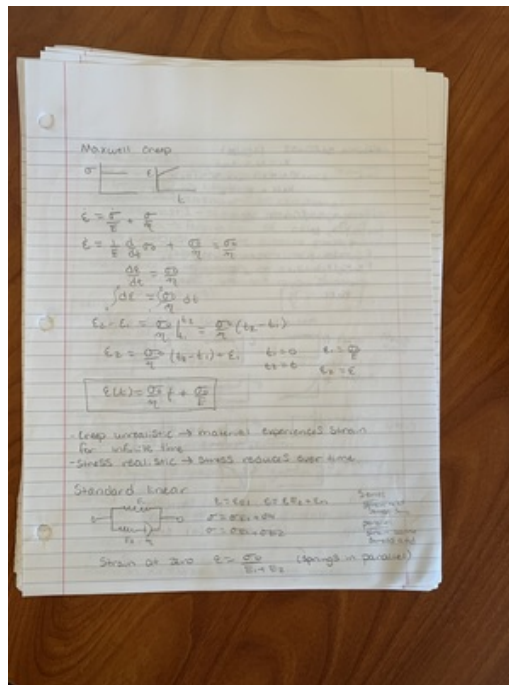 Maxwell creep
σ ε
t
ε̇ = σ̇/E + σ/η
ε̇ = 1/E d/dt σ0 + σ0/η = σ0/η
dε/dt = σ0/η
∫dε = ∫σ0/η dt
ε2 - ε1 = σ0/η |t1 t2 = σ0/η (t2 - t1)
ε2 = σ0/η (t2 - t1) + ε1 t1 = 0 ε1 = σ0/E
t2 = t ε2 = ε
ε(t) = σ0/η t + σ0/E
- Creep unrealistic → material experiences strain
for infinite time
- Stress realistic → stress reduces over time
Standard linear
E1 ε = εE1 ε = εE2 + εη Series
σ = σE1 + ση
E2 η σ = σE1 + σE2
Strain at zero ε = σ0/E1+E2 (springs in parallel)